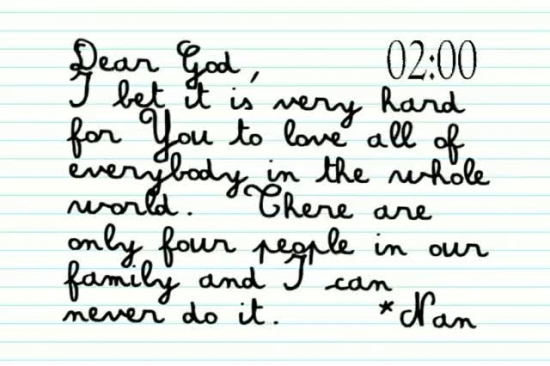 Dear God, 02:00
I bet it is very hard
for You to love all of
everybody in the whole
world. There are
only four people in our
family and I can
never do it. *Nan